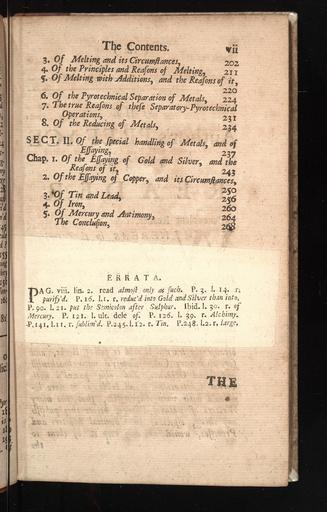 The Contents. vii
3. Of Melting and its Circumstances, 202
4. Of the Principles and Reasons of Melting, 211
5. Of Melting with Additions, and the Reasons of it,
220
6. Of the Pyrotechnical Separation of Metals, 224
7. The true Reasons of these Separatory-Pyrotechnical
Operations, 231
8. Of the Reducing of Metals, 234
SECT. II. Of the special handling of Metals, and of
Essaying, 237
Chap. 1. Of the Essaying of Gold and Silver, and the
Reasons of it, 243
2. Of the Essaying of Copper, and its Circumstances,
250
3. Of Tin and Lead, 256
4. Of Iron, 260
5. Of Mercury and Antimony, 264
The Conclusion, 268
ERRATA.
PAG. viii. lin. 2. read almost only as such. P. 3. l. 14. r.
purify'd. P. 16. l.1. r. reduc'd into Gold and Silver than into,
P. 90. l. 21. put the Semicolon after Sulphur. Ibid. l. 30. r. of
Mercury. P. 121. l. ult. dele of. P. 126. l. 39. r. Alchimy.
P.141. l.11. r. sublim'd. P.245. l.12. r. Tin. P.248. l.2. r. large.
THE